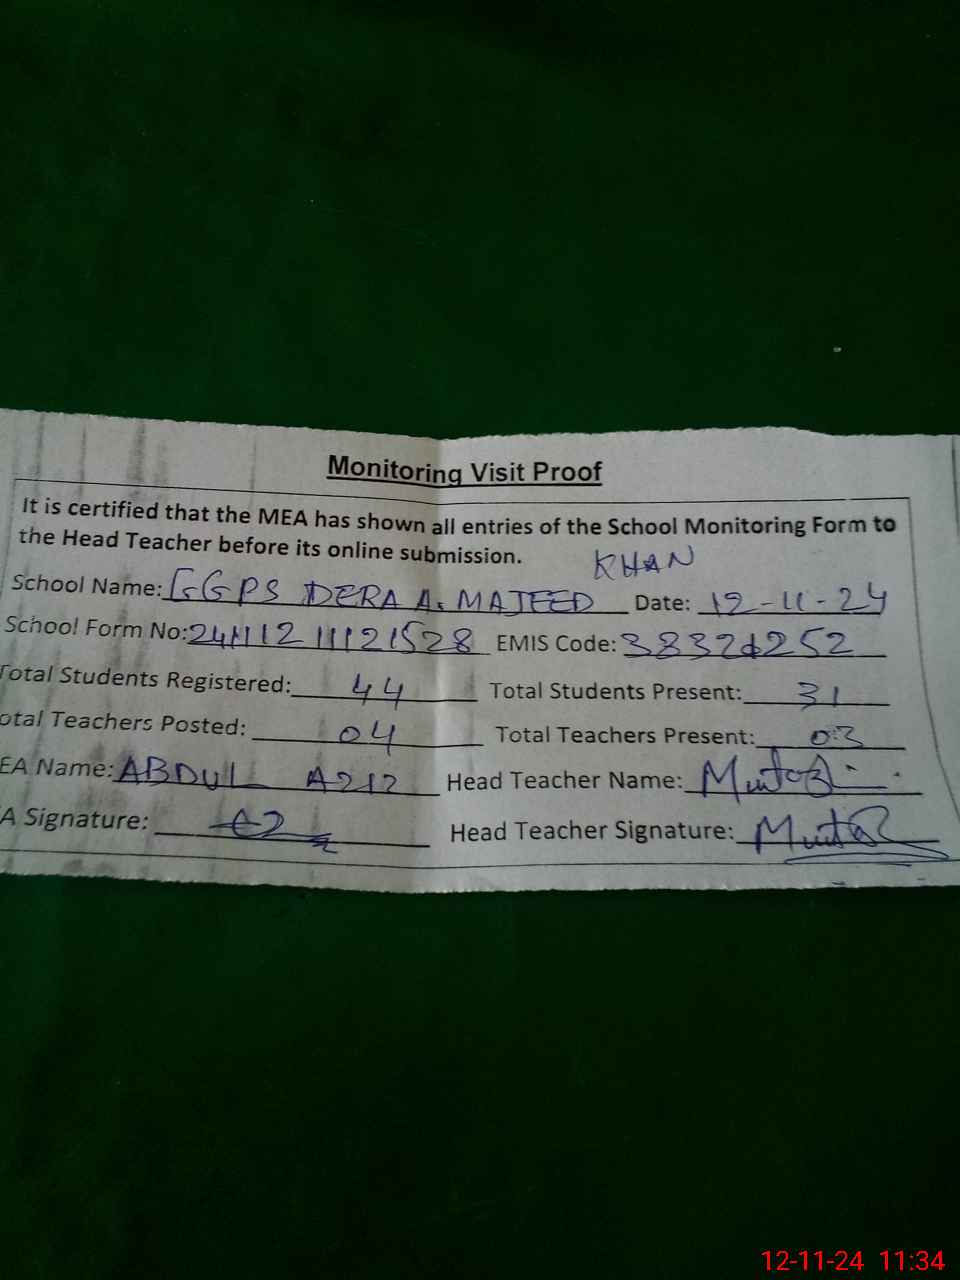 Monitoring Visit Proof
It is certified that the MEA has shown all entries of the School Monitoring Form to
the Head Teacher before its online submission.
KHAN
School Name: GGPS DERA A. MAJEED Date: 12-11-24
School Form No: 241112 11121528 EMIS Code:
Total Students Registered: 44 Total Students Present: 31
otal Teachers Posted: 04 Total Teachers Present: 03
EA Name: ABDUL AZIZ Head Teacher Name:
A Signature: Head Teacher Signature:
12-11-24 11:34